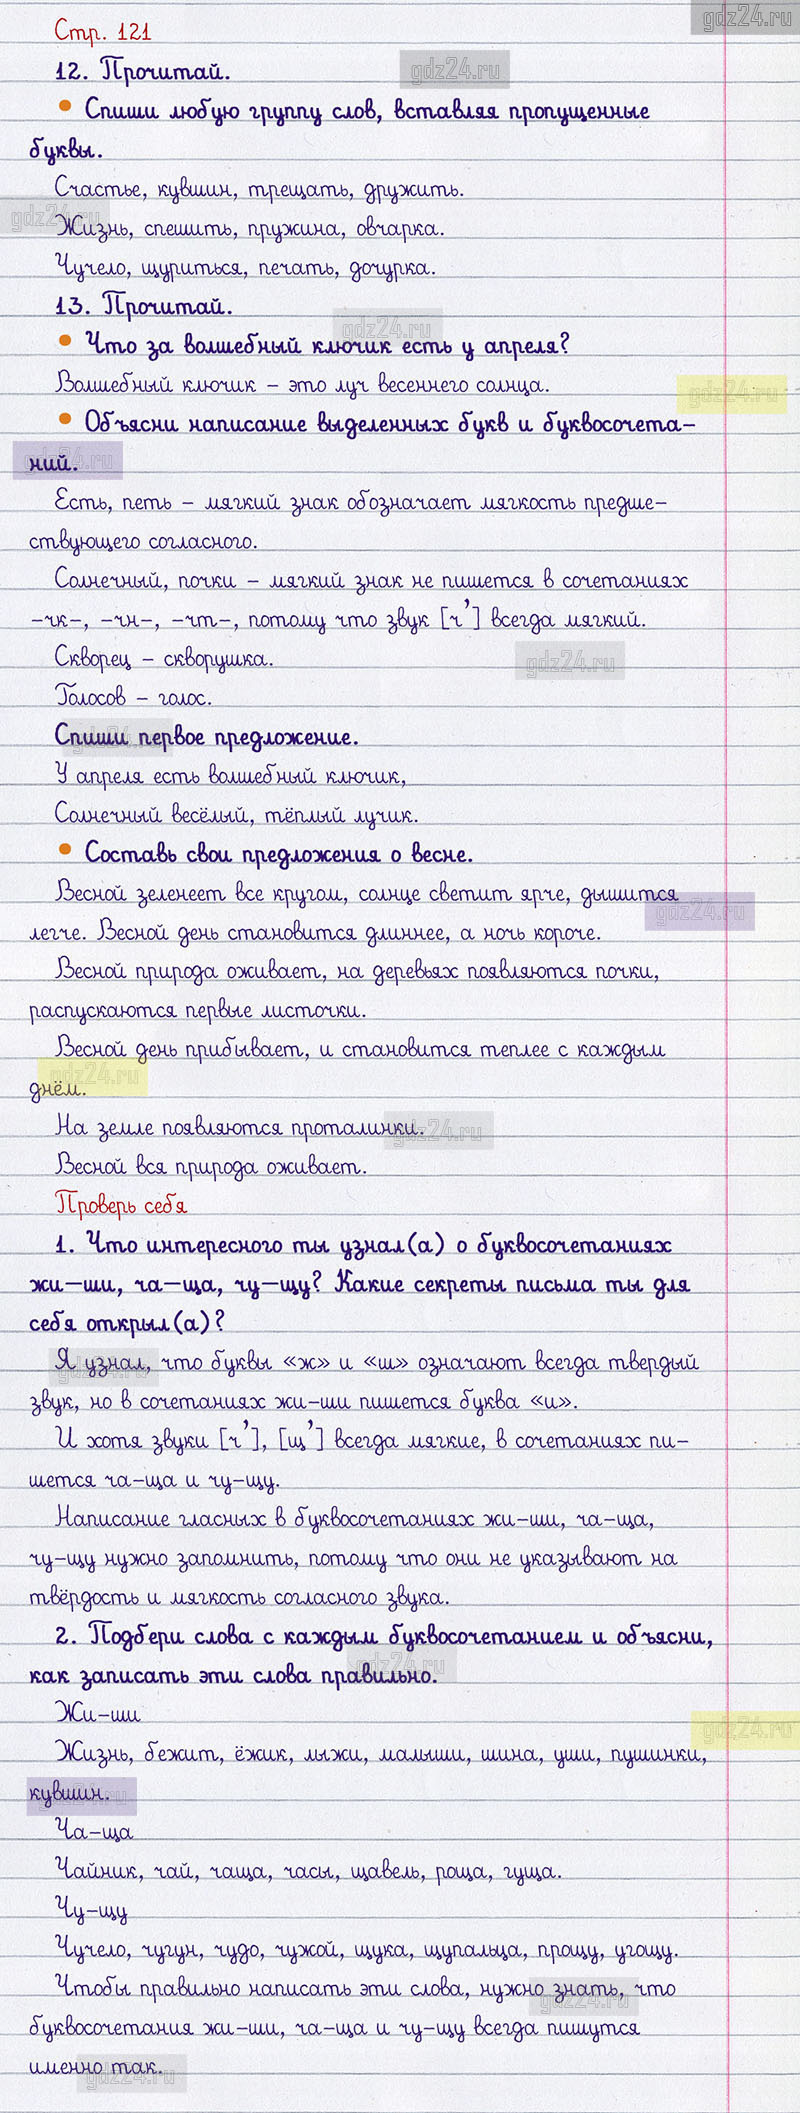 gdz24.ru
Стр. 121
12. Прочитай.
gdz24.ru
• Спиши любую группу слов, вставляя пропущенные
буквы.
Счастье, кувшин, трещать, дружить.
gdz24.ru
Жизнь, спешить, пружина, овчарка.
Чучело, щуриться, печать, дочурка.
13. Прочитай.
gdz24.ru
• Что за волшебный ключик есть у апреля?
Волшебный ключик – это луч весеннего солнца.
gdz24.ru
• Объясни написание выделенных букв и буквосочета-
ний.
gdz24.ru
Есть, петь – мягкий знак обозначает мягкость предше-
ствующего согласного.
Солнечный, почки – мягкий знак не пишется в сочетаниях
-чк-, -чн-, -чт-, потому что звук [ч’] всегда мягкий.
Скворец – скворушка.
gdz24.ru
Голосов – голос.
Спиши первое предложение.
gdz24.ru
У апреля есть волшебный ключик,
Солнечный весёлый, тёплый лучик.
• Составь свои предложения о весне.
Весной зеленеет все кругом, солнце светит ярче, дышится
gdz24.ru
легче. Весной день становится длиннее, а ночь короче.
Весной природа оживает, на деревьях появляются почки,
распускаются первые листочки.
Весной день прибывает, и становится теплее с каждым
gdz24.ru
днём.
На земле появляются проталинки.
gdz24.ru
Весной вся природа оживает.
Проверь себя
1. Что интересного ты узнал(а) о буквосочетаниях
жи–ши, ча–ща, чу–щу? Какие секреты письма ты для
себя открыл(а)?
Я узнал, что буквы «ж» и «ш» означают всегда твердый
gdz24.ru
звук, но в сочетаниях жи-ши пишется буква «и».
И хотя звуки [ч’], [щ’] всегда мягкие, в сочетаниях пи-
шется ча-ща и чу-щу.
Написание гласных в буквосочетаниях жи-ши, ча-ща,
чу-щу нужно запомнить, потому что они не указывают на
твёрдость и мягкость согласного звука.
2. Подбери слова с каждым буквосочетанием и объясни,
как записать эти слова правильно.
gdz24.ru
Жи-ши
gdz24.ru
Жизнь, бежит, ёжик, лыжи, малыши, шина, уши, пушинки,
кувшин.
gdz24.ru
Ча-ща
Чайник, чай, чаща, часы, щавель, роща, гуща.
Чу-щу
Чучело, чугун, чудо, чужой, щука, щупальца, прощу, угощу.
Чтобы правильно написать эти слова, нужно знать, что
gdz24.ru
буквосочетания жи-ши, ча-ща и чу-щу всегда пишутся
именно так.
gdz24.ru